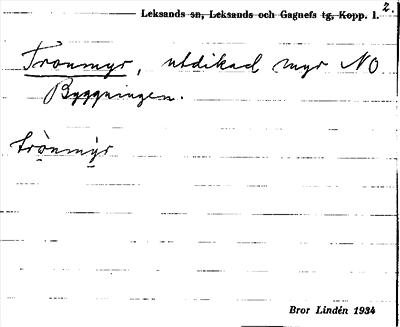 2.
Leksands sn, Leksands och Gagnefs tg, Kopp. l.
Tronmyr, utdikad myr NO
Byggningen.
trònmỳr
Bror Lindén 1934